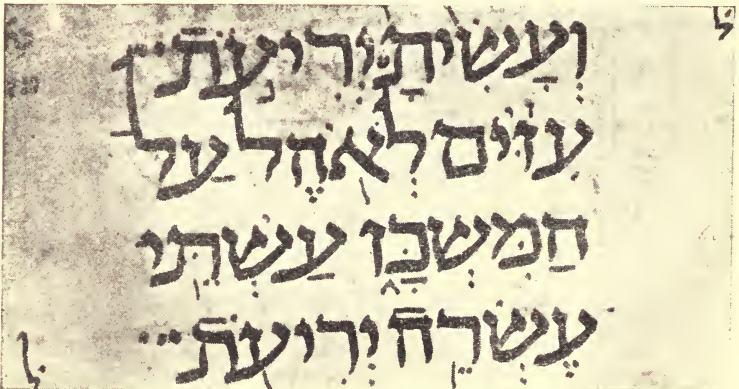 ל̇
וְעַשִׂיתָ יְרִיעֹת
עִזִּים לְאֹהֶל עַל
הַמִּשְׁכָּ֑ן עַשְׁתֵּי
עֶשְׂרֵה יְרִיעֹת
ל̇